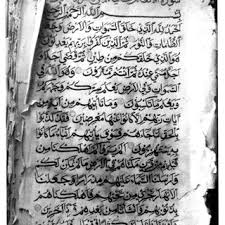 بسم الله الرحمن الرحيم
الحمد لله الذي خلق السموات والارض وجعل
الظلمات والنور ثم الذين كفروا بربهم يعدلون
هو الذي خلقكم من طين ثم قضى اجلا واجل
مسمى عنده ثم انتم تمترون وهو الله في
السموات وفي الارض يعلم سركم وجهركم
ويعلم ما تكسبون وما تاتيهم من اية من ايات
ربهم الا كانوا عنها معرضين فقد كذبوا
بالحق لما جاءهم فسوف ياتيهم انباء ما كانوا
به يستهزؤن الم يروا كم اهلكنا من
قبلهم من قرن مكناهم في الارض ما لم نمكن لكم
وارسلنا السماء عليهم مدرارا وجعلنا
الانهار تجري من تحتهم فاهلكناهم
بذنوبهم وانشانا من بعدهم قرنا اخرين